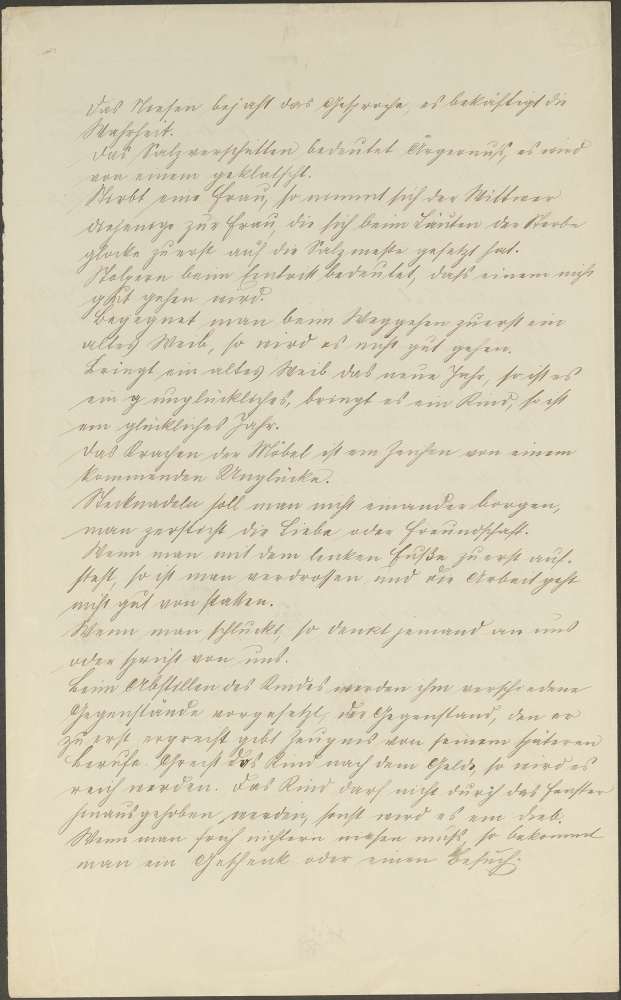 Das Niesen bejaht das Gesproche, es bekäftigt die
Wahrheit.
Das Salzverschütten bedeutet Ärgernuß, es wird
von einem geklatscht.
Stirbt eine Frau, so nimmt sich der Wittwer
diejenige zur Frau, die sich beim Läuten der Sterbe
glocke zuerst auf die Salzmeste gesetzt hat.
Stolpern beim Eintritt bedeutet, daß einem nicht
gut gehen wird.
Begegnet man beim Weggehen zuerst ein
altes Weib, so wird es nicht gut gehen.
Bringt ein altes Weib das neue Jahr, so ist es
ein unglückliches, bringt es ein Kind, so ist
ein glückliches Jahr.
Das Krachen der Möbel ist ein Zeichen von einem
kommenden Unglücke.
Stecknadeln soll man nicht einander borgen,
man zersticht die Liebe oder Freundschaft.
Wenn man mit dem linken Fuße zuerst auf-
steht, so ist man verdrossen und die Arbeit geht
nicht gut von statten.
Wenn man schluckt, so denkt jemand an uns
oder spricht von uns.
Beim Abstillen des Kindes werden ihm verschiedene
Gegenstände vorgesetzt, der Gegenstand, den er
zu erst ergreift gibt Zeugnis von seinem späteren
Berufe. Greift das Kind nach dem Gelde, so wird es
reich werden. Das Kind darf nicht durch das Fenster
hinausgehoben werden, sonst wird es ein Dieb.
Wenn man früh nüchtern niesen muß, so bekommt
man ein Geschenk oder einen Besuch.